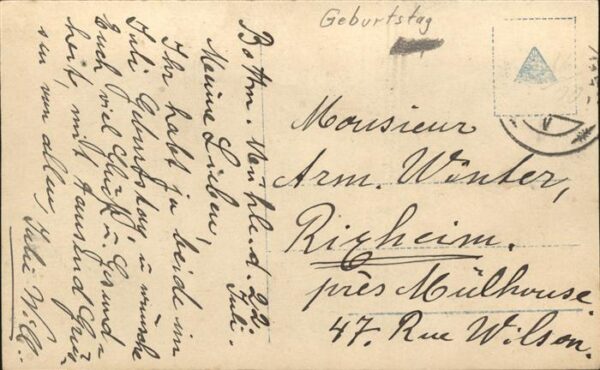 Geburtstag
Bottm. Mühle. d. 22.
Juli.
Meine Lieben,
Ihr habt ja beide im
Juli Geburtstag, u wünsche
Euch viel Glück u. Gesund-
heit, mit tausend Grüs-
sen von allen,
Monsieur
Arm. Winter,
Rixheim.
près Mülhouse
47. Rue Wilson.